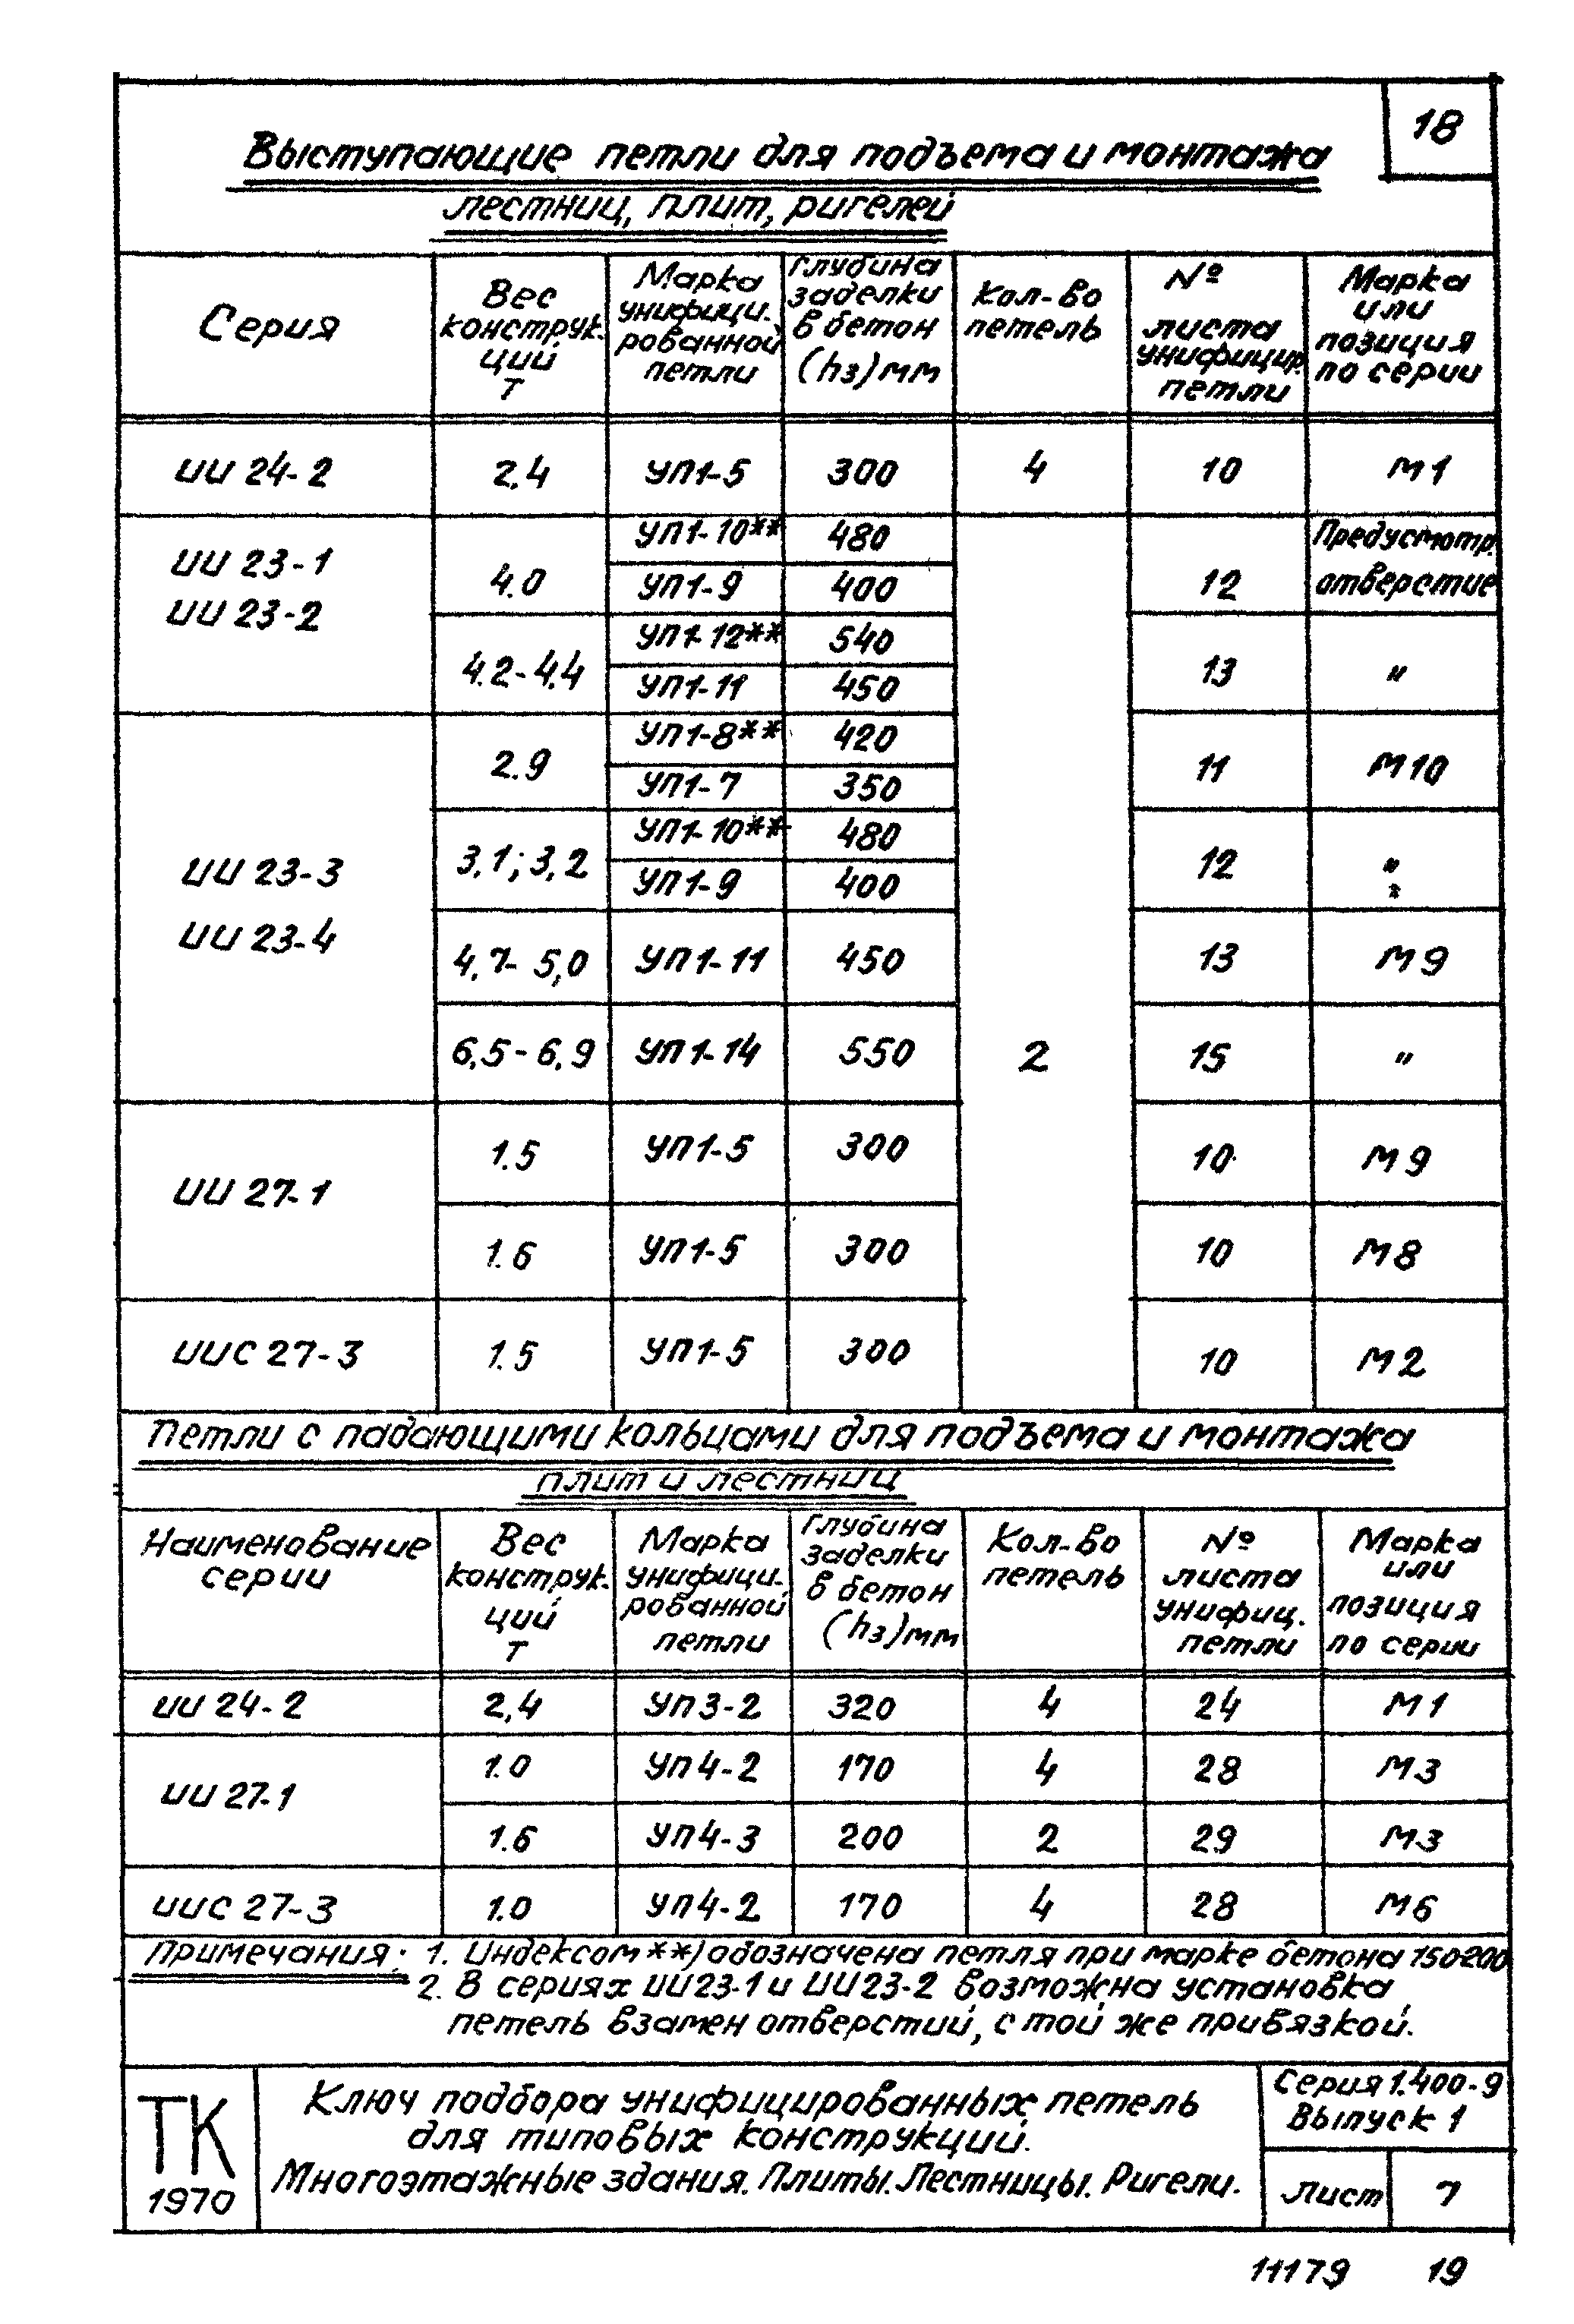 18
Выступающие петли для подъема и монтажа
лестниц, плит, ригелей
Серия
Вес
конструк-
ций
Т
Марка
унифици-
рованной
петли
Глубина
заделки
в бетон
(hз) мм
Кол-во
петель
№
листа
унифицир.
петли
Марка
или
позиция
по серии
ИИ 24-2 2.4 УП1-5 300 4 10 М1
ИИ 23-1
ИИ 23-2
4.0 УП1-10** 480 12 Предусмотр.
отверстие
УП1-9 400
4.2-4.4 УП1-12** 540 13 "
УП1-11 450
ИИ 23-3
ИИ 23-4
2.9 УП1-8** 420 11 М10
УП1-7 350
3,1; 3,2 УП1-10** 480 12 "
УП1-9 400
4,7-5,0 УП1-11 450 13 М9
6,5-6,9 УП1-14 550 2 15 "
ИИ 27-1
1.5 УП1-5 300 10 М9
1.6 УП1-5 300 10 М8
ИИС 27-3 1.5 УП1-5 300 10 М2
Петли с падающими кольцами для подъема и монтажа
плит и лестниц
Наименование
серии
Вес
конструк-
ций
Т
Марка
унифици-
рованной
петли
Глубина
заделки
в бетон
(hз) мм
Кол-во
петель
№
листа
унифиц.
петли
Марка
или
позиция
по серии
ИИ 24-2 2,4 УП3-2 320 4 24 М1
ИИ 27-1
1.0 УП4-2 170 4 28 М3
1.6 УП4-3 200 2 29 М3
ИИС 27-3 1.0 УП4-2 170 4 28 М6
Примечания: 1. Индексом **) обозначена петля при марке бетона 150-200
2. В сериях ИИ23-1 и ИИ23-2 возможна установка
петель взамен отверстий, с той же привязкой.
ТК
1970
Ключ подбора унифицированных петель
для типовых конструкций.
Многоэтажные здания. Плиты. Лестницы. Ригели.
Серия 1.400-9
Выпуск 1
Лист 7
11179 19